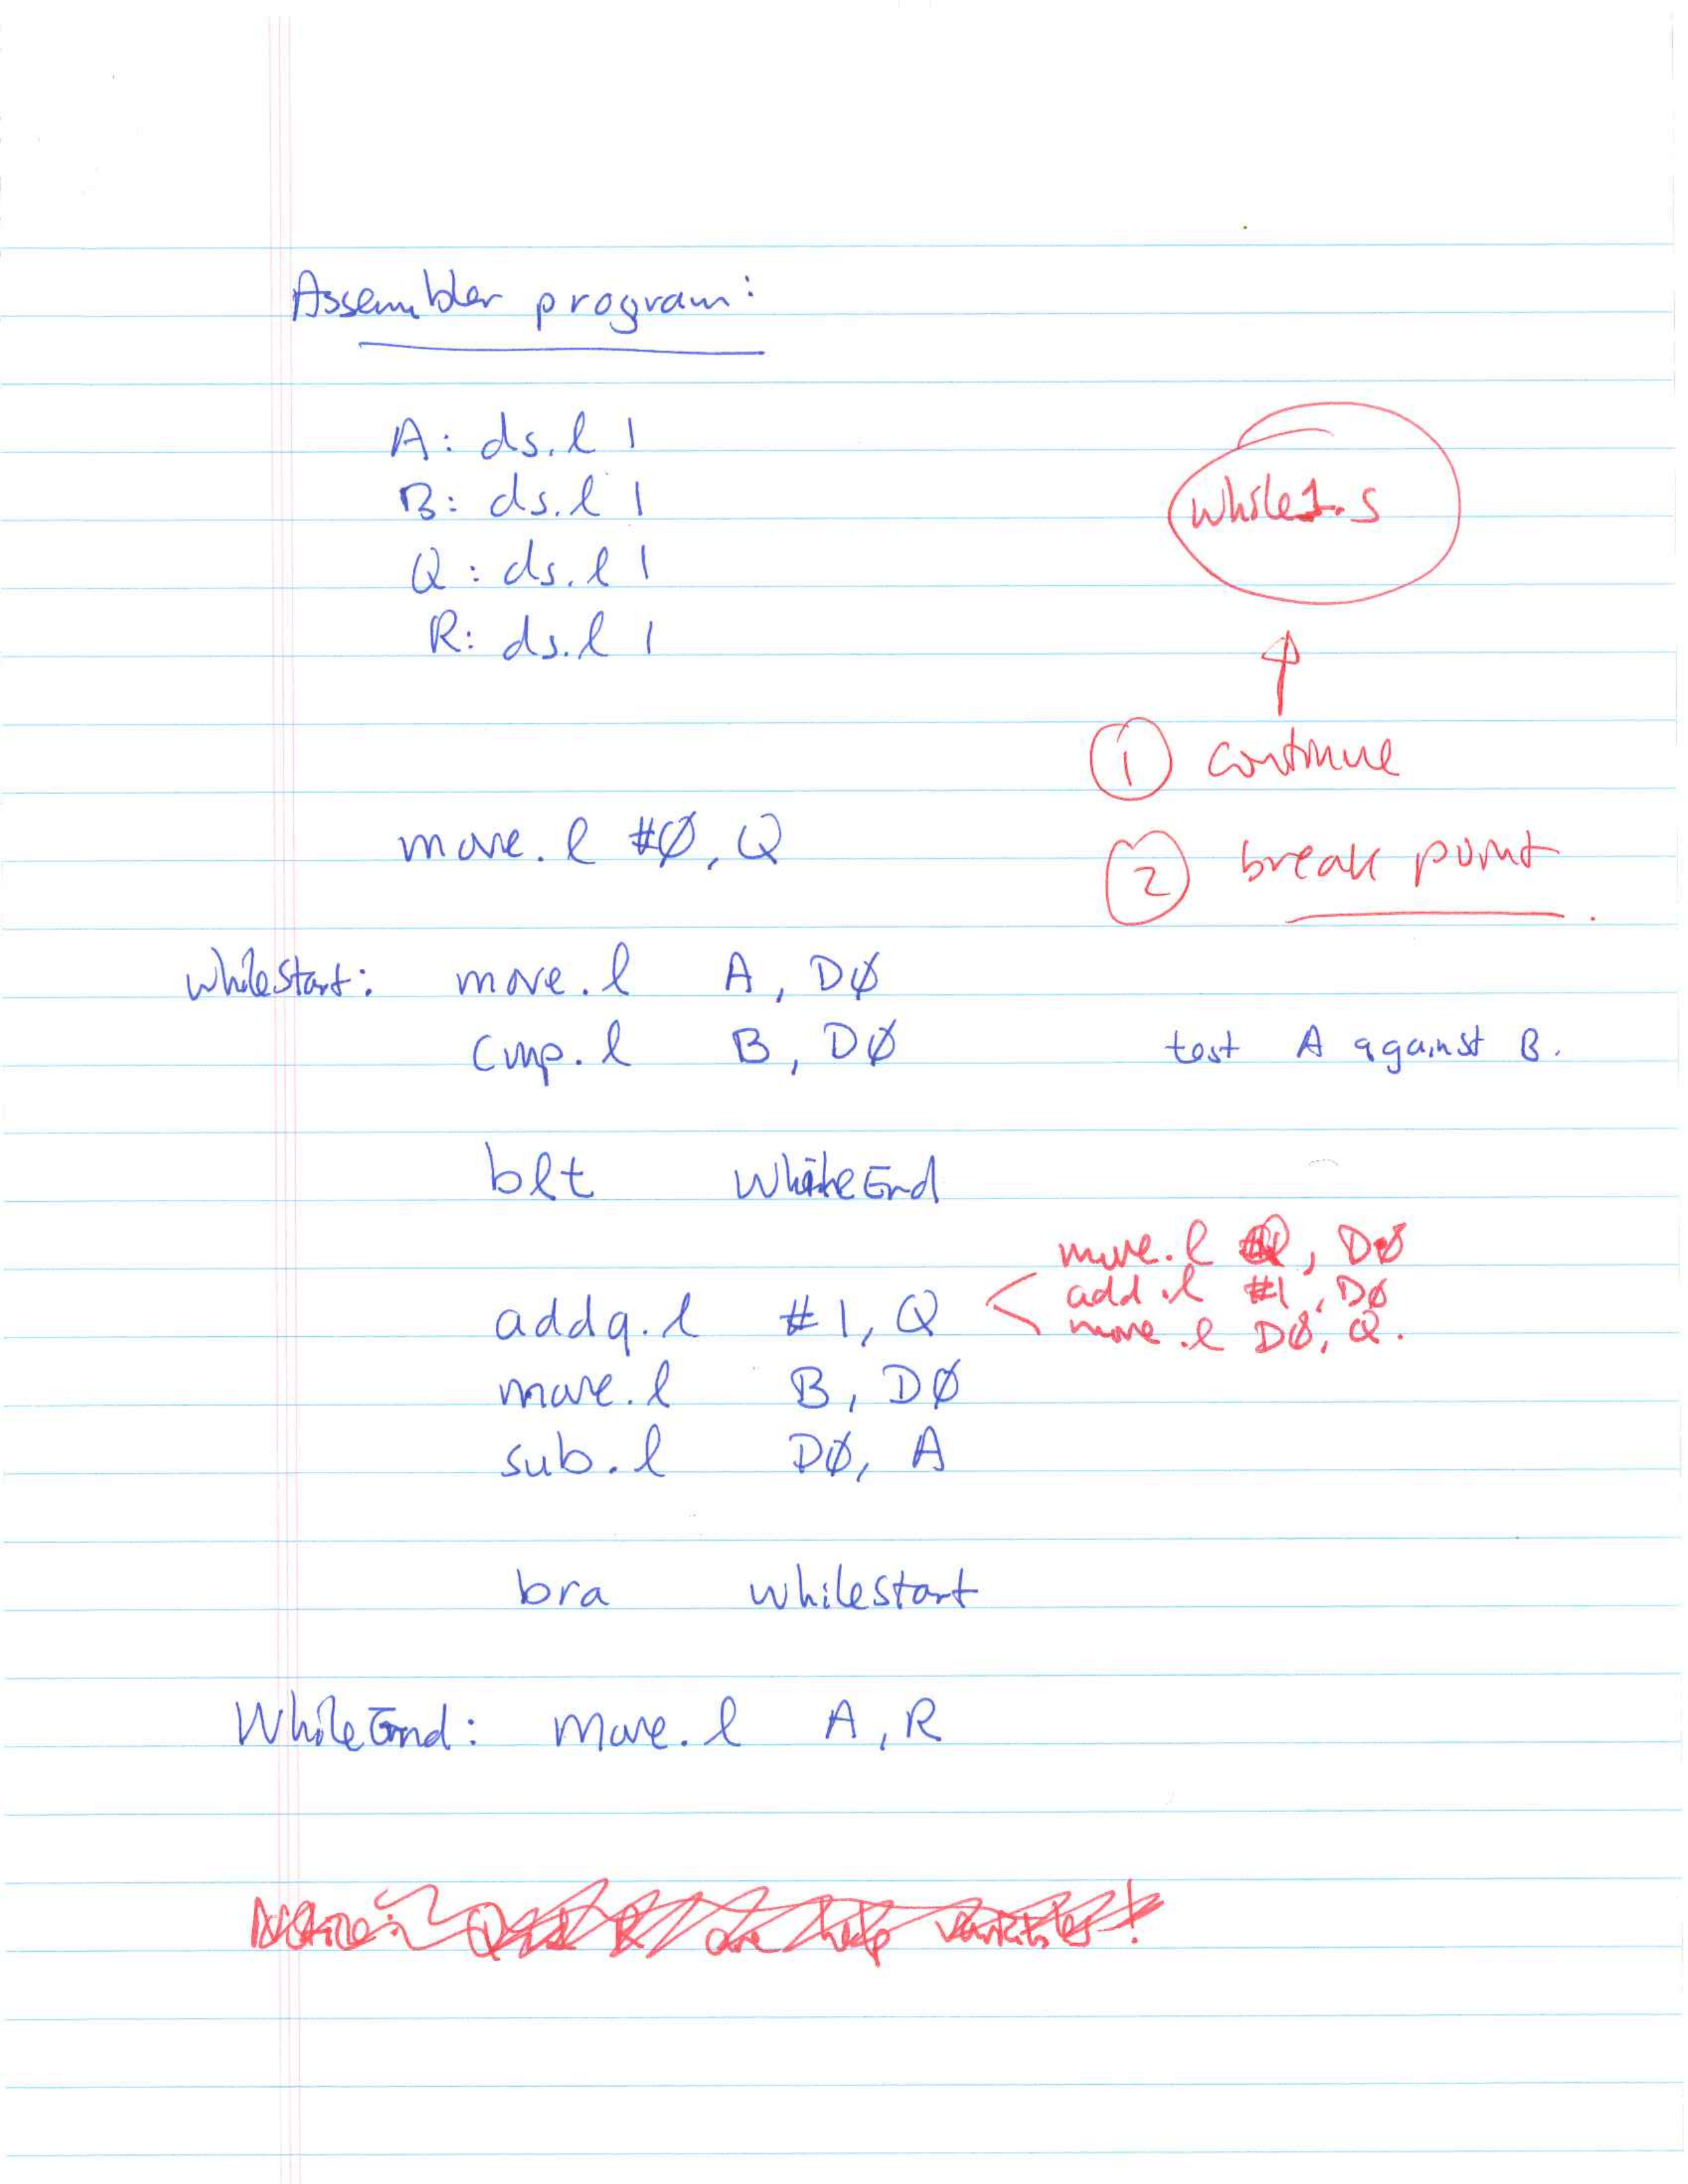 Assembler program:
A: ds.l 1
B: ds.l 1
Q: ds.l 1
R: ds.l 1
while1.s
① continue
② break point.
move.l #0, Q
whileStart: move.l A, D0
cmp.l B, D0 test A against B.
blt WhileEnd
move.l Q, D0
addq.l #1, Q < add.l #1, D0
move.l D0, Q.
move.l B, D0
sub.l D0, A
bra whilestart
WhileEnd: move.l A, R